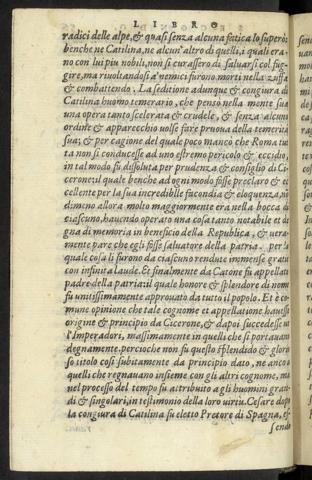 LIBRO
radici delle alpe, & quasi senza alcuna fatica lo superò:
benche ne Catilina, ne alcun'altro di quelli, i quali era-
no con lui piu nobili, non si curassero di saluarsi col fug-
gire, ma riuoltandosi a' nemici furono morti nella zuffa
& combattendo. La seditione adunque & congiura di
Catilina huomo temerario, che pensò nella mente sua
una opera tanto scelerata & crudele, & senza alcuni
ordine & apparecchio uolse fare pruoua della temerita
sua; & per cagione del quale poco mancò che Roma tut
ta non si conducesse ad uno estremo pericolo & eccidio,
in tal modo fu dissoluta per prudenza & consiglio di Ci-
cerone: il quale benche ad ogni modo fosse preclaro & ec
cellente per la sua incredibile facondia & eloquenza, ni
dimeno allora molto maggiormente era nella bocca di
ciascuno, hauendo operato una cosa tanto notabile et de
gna di memoria in beneficio della Republica, & uera-
mente pare che egli fosse saluatore della patria. per la
quale cosa li furono da ciascuno rendute immense gratie
con infinita laude. Et finalmente da Catone fu appellato
padre della patria: il quale honore & splendore di nome
fu unitissimamente approuato da tutto il popolo. Et è co-
mune opinione che tale cognome et appellatione hauesse
origine & principio da Cicerone, & dapoi succedesse ne
l'Imperadori, massimamente in quelli che si portauano
degnamente. percioche non fu questo splendido & glorio
so titolo così subitamente da principio dato, ne anco a
quelli che regnauano insieme con gli altri cognome, ma
nel processo del tempo fu attribuito a gli huomini gran-
di & singolari, in testimonio della loro uirtu. Cesare dopo
la congiura di Catilina fu eletto Pretore di Spagna, es-
sendo